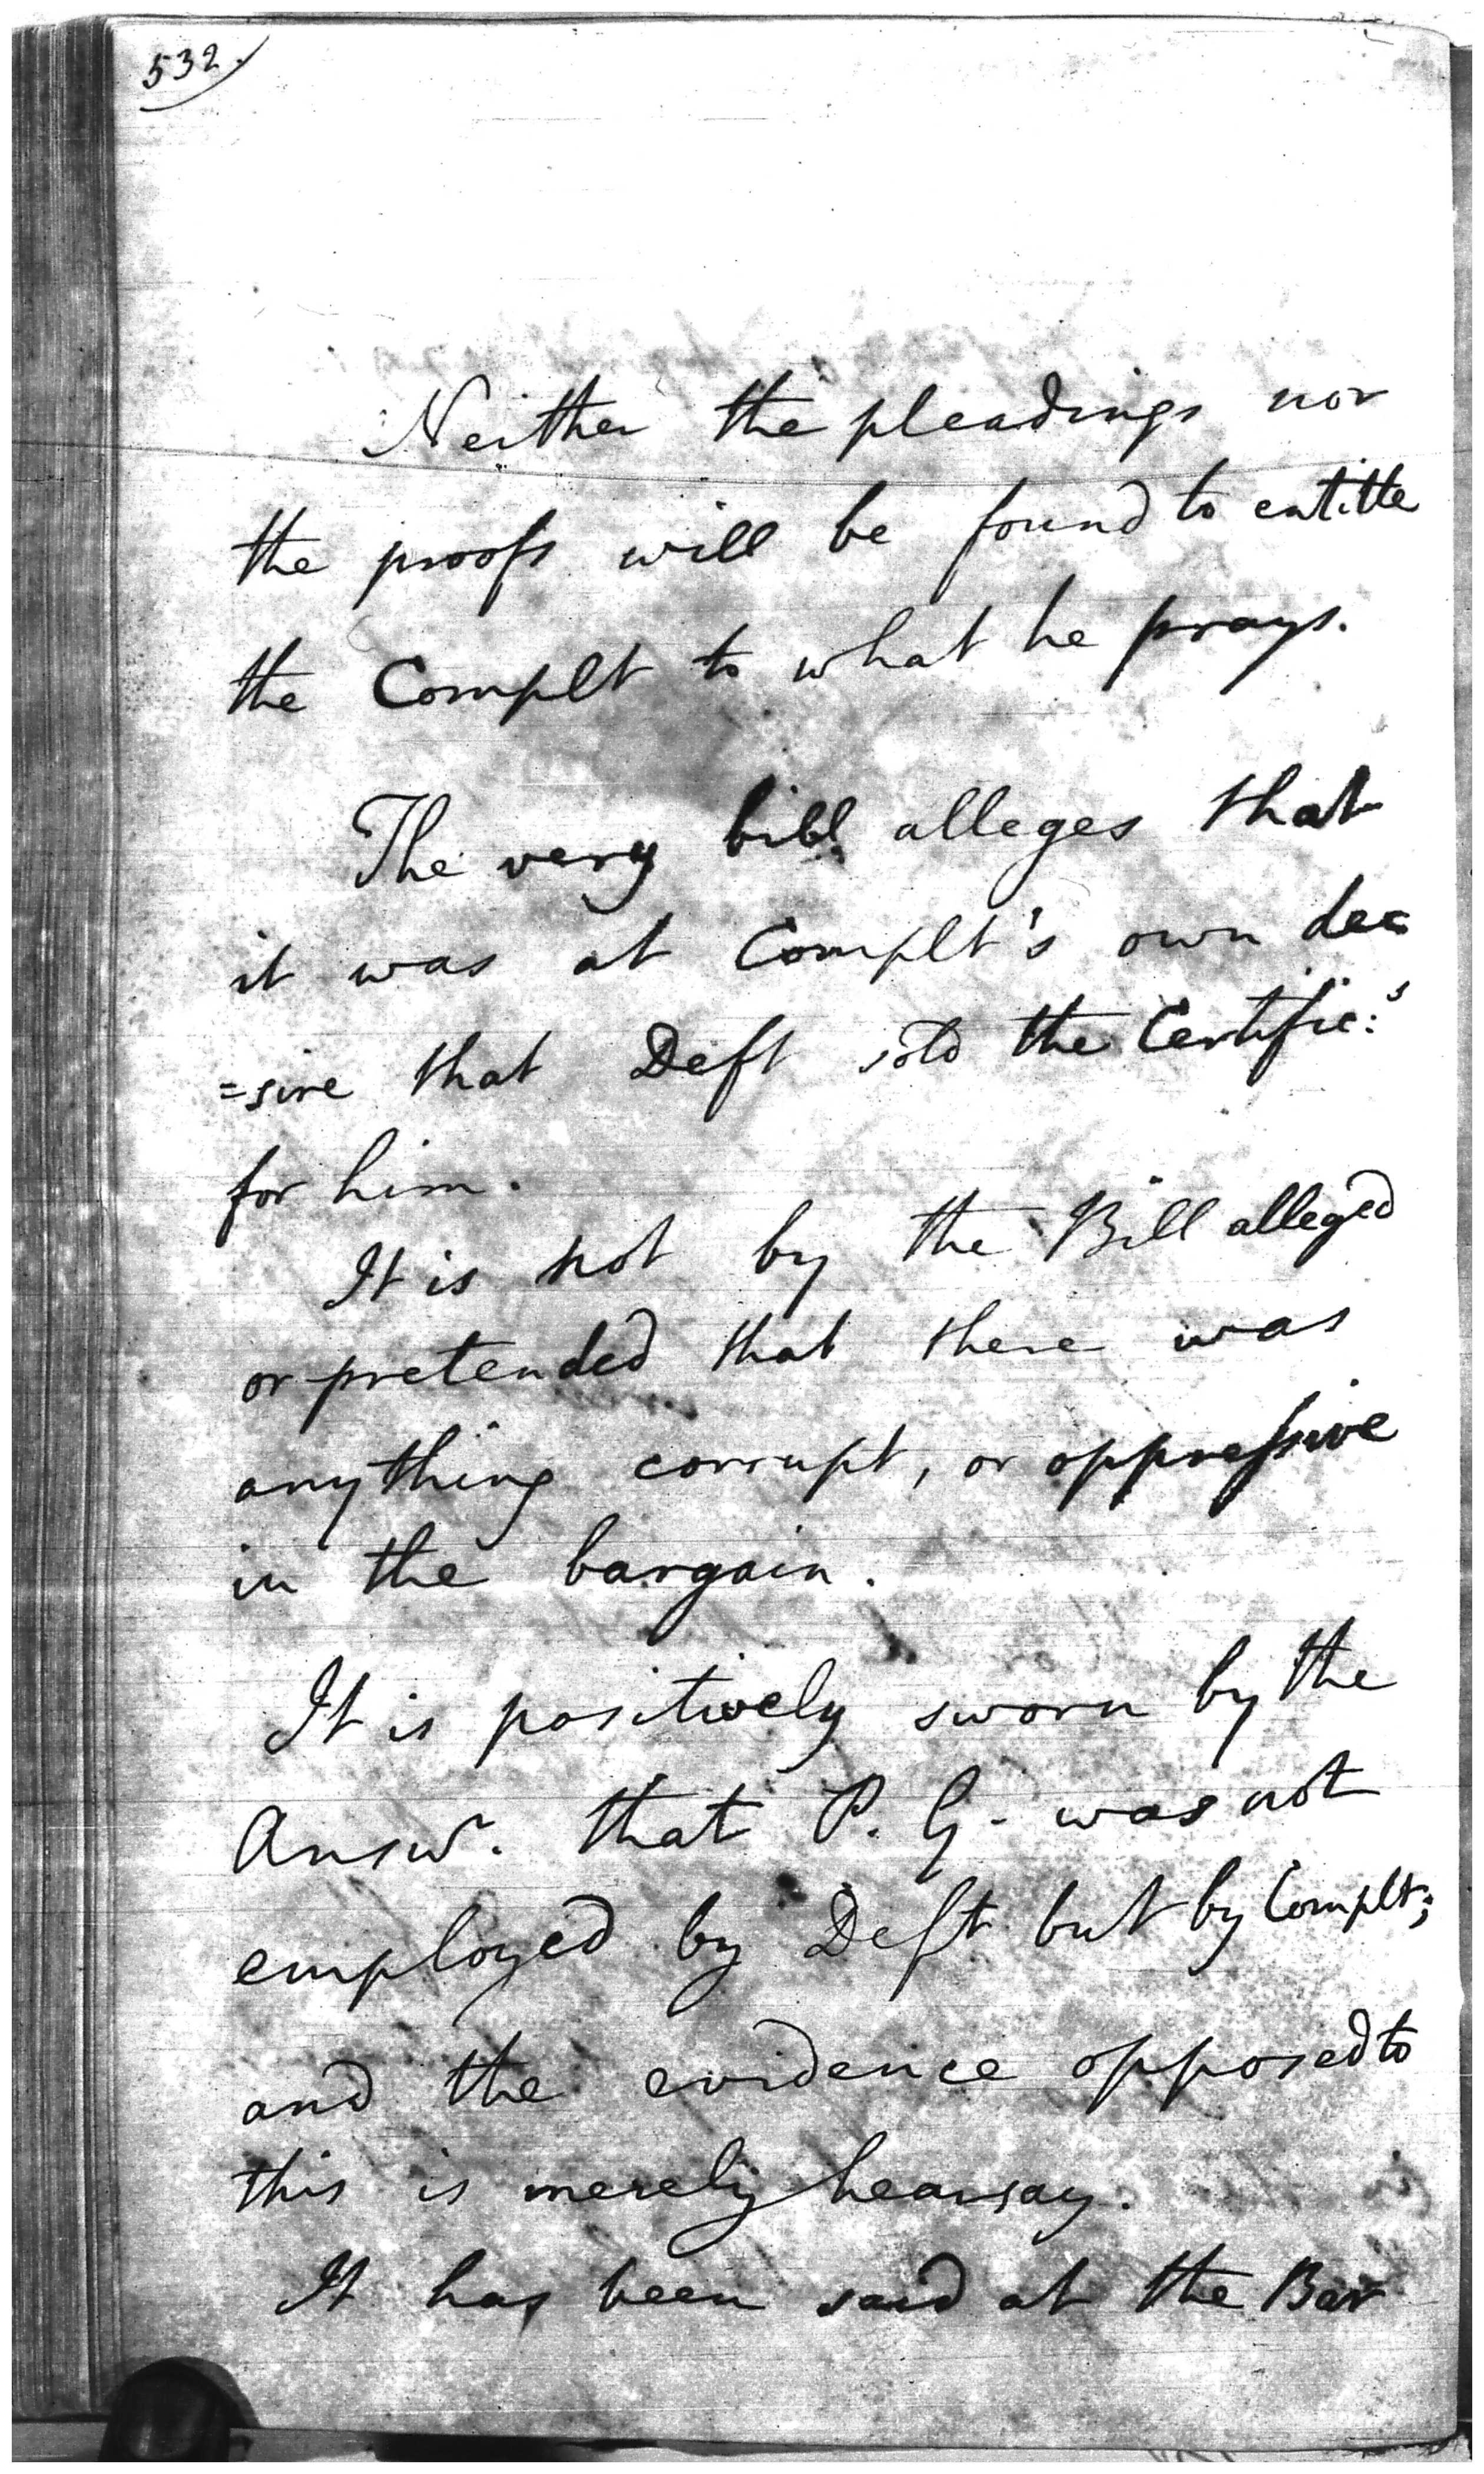 532.
Neither the pleadings nor
the proofs will be found to entitle
the Complt to what he prays.
The very bill alleges that
it was at Complt's own de=
=sire that Deft sold the Certific:s
for him.
It is not by the Bill alleged
or pretended that there was
anything corrupt, or oppressive
in the bargain.
It is positively sworn by the
Answ. that P. G. was not
employed by Deft but by Complt;
and the evidence opposed to
this is merely hearsay.
It has been said at the Bar